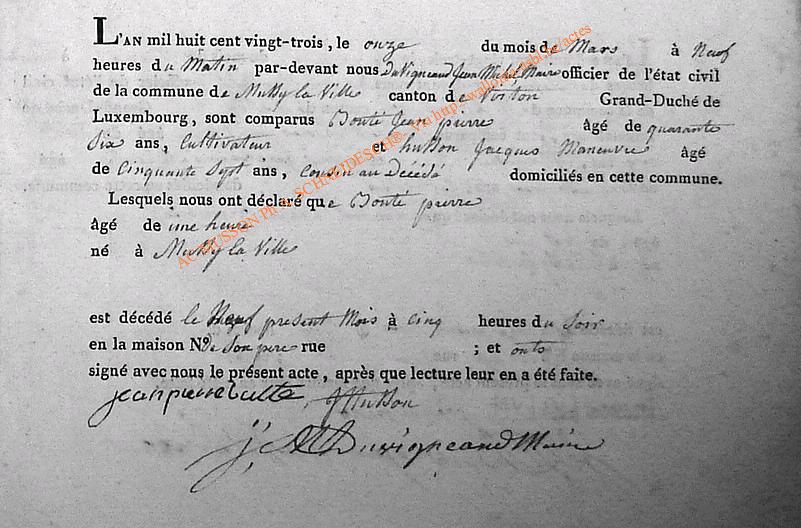 L'AN mil huit cent vingt-trois, le onze du mois de Mars à Neuf
heures du Matin par-devant nous Duvigneaud Jean Michel Maire officier de l'état civil
de la commune de Mussy la Ville canton de Virton Grand-Duché de
Luxembourg, sont comparus Bonté Jean pierre âgé de quarante
Six ans, Cultivateur et husson Jacques Manœuvre âgé
de Cinquante Sept ans, Cousin au Décédé domiciliés en cette commune.
Lesquels nous ont déclaré que Bonté pierre
âgé de une heure
né à Mussy la Ville
est décédé le Neuf présent Mois à Cinq heures du Soir
en la maison Nº de Son pere rue ; et onts
signé avec nous le présent acte, après que lecture leur en a été faite.
jeanpierre
J Husson
Duvigneaud Maire